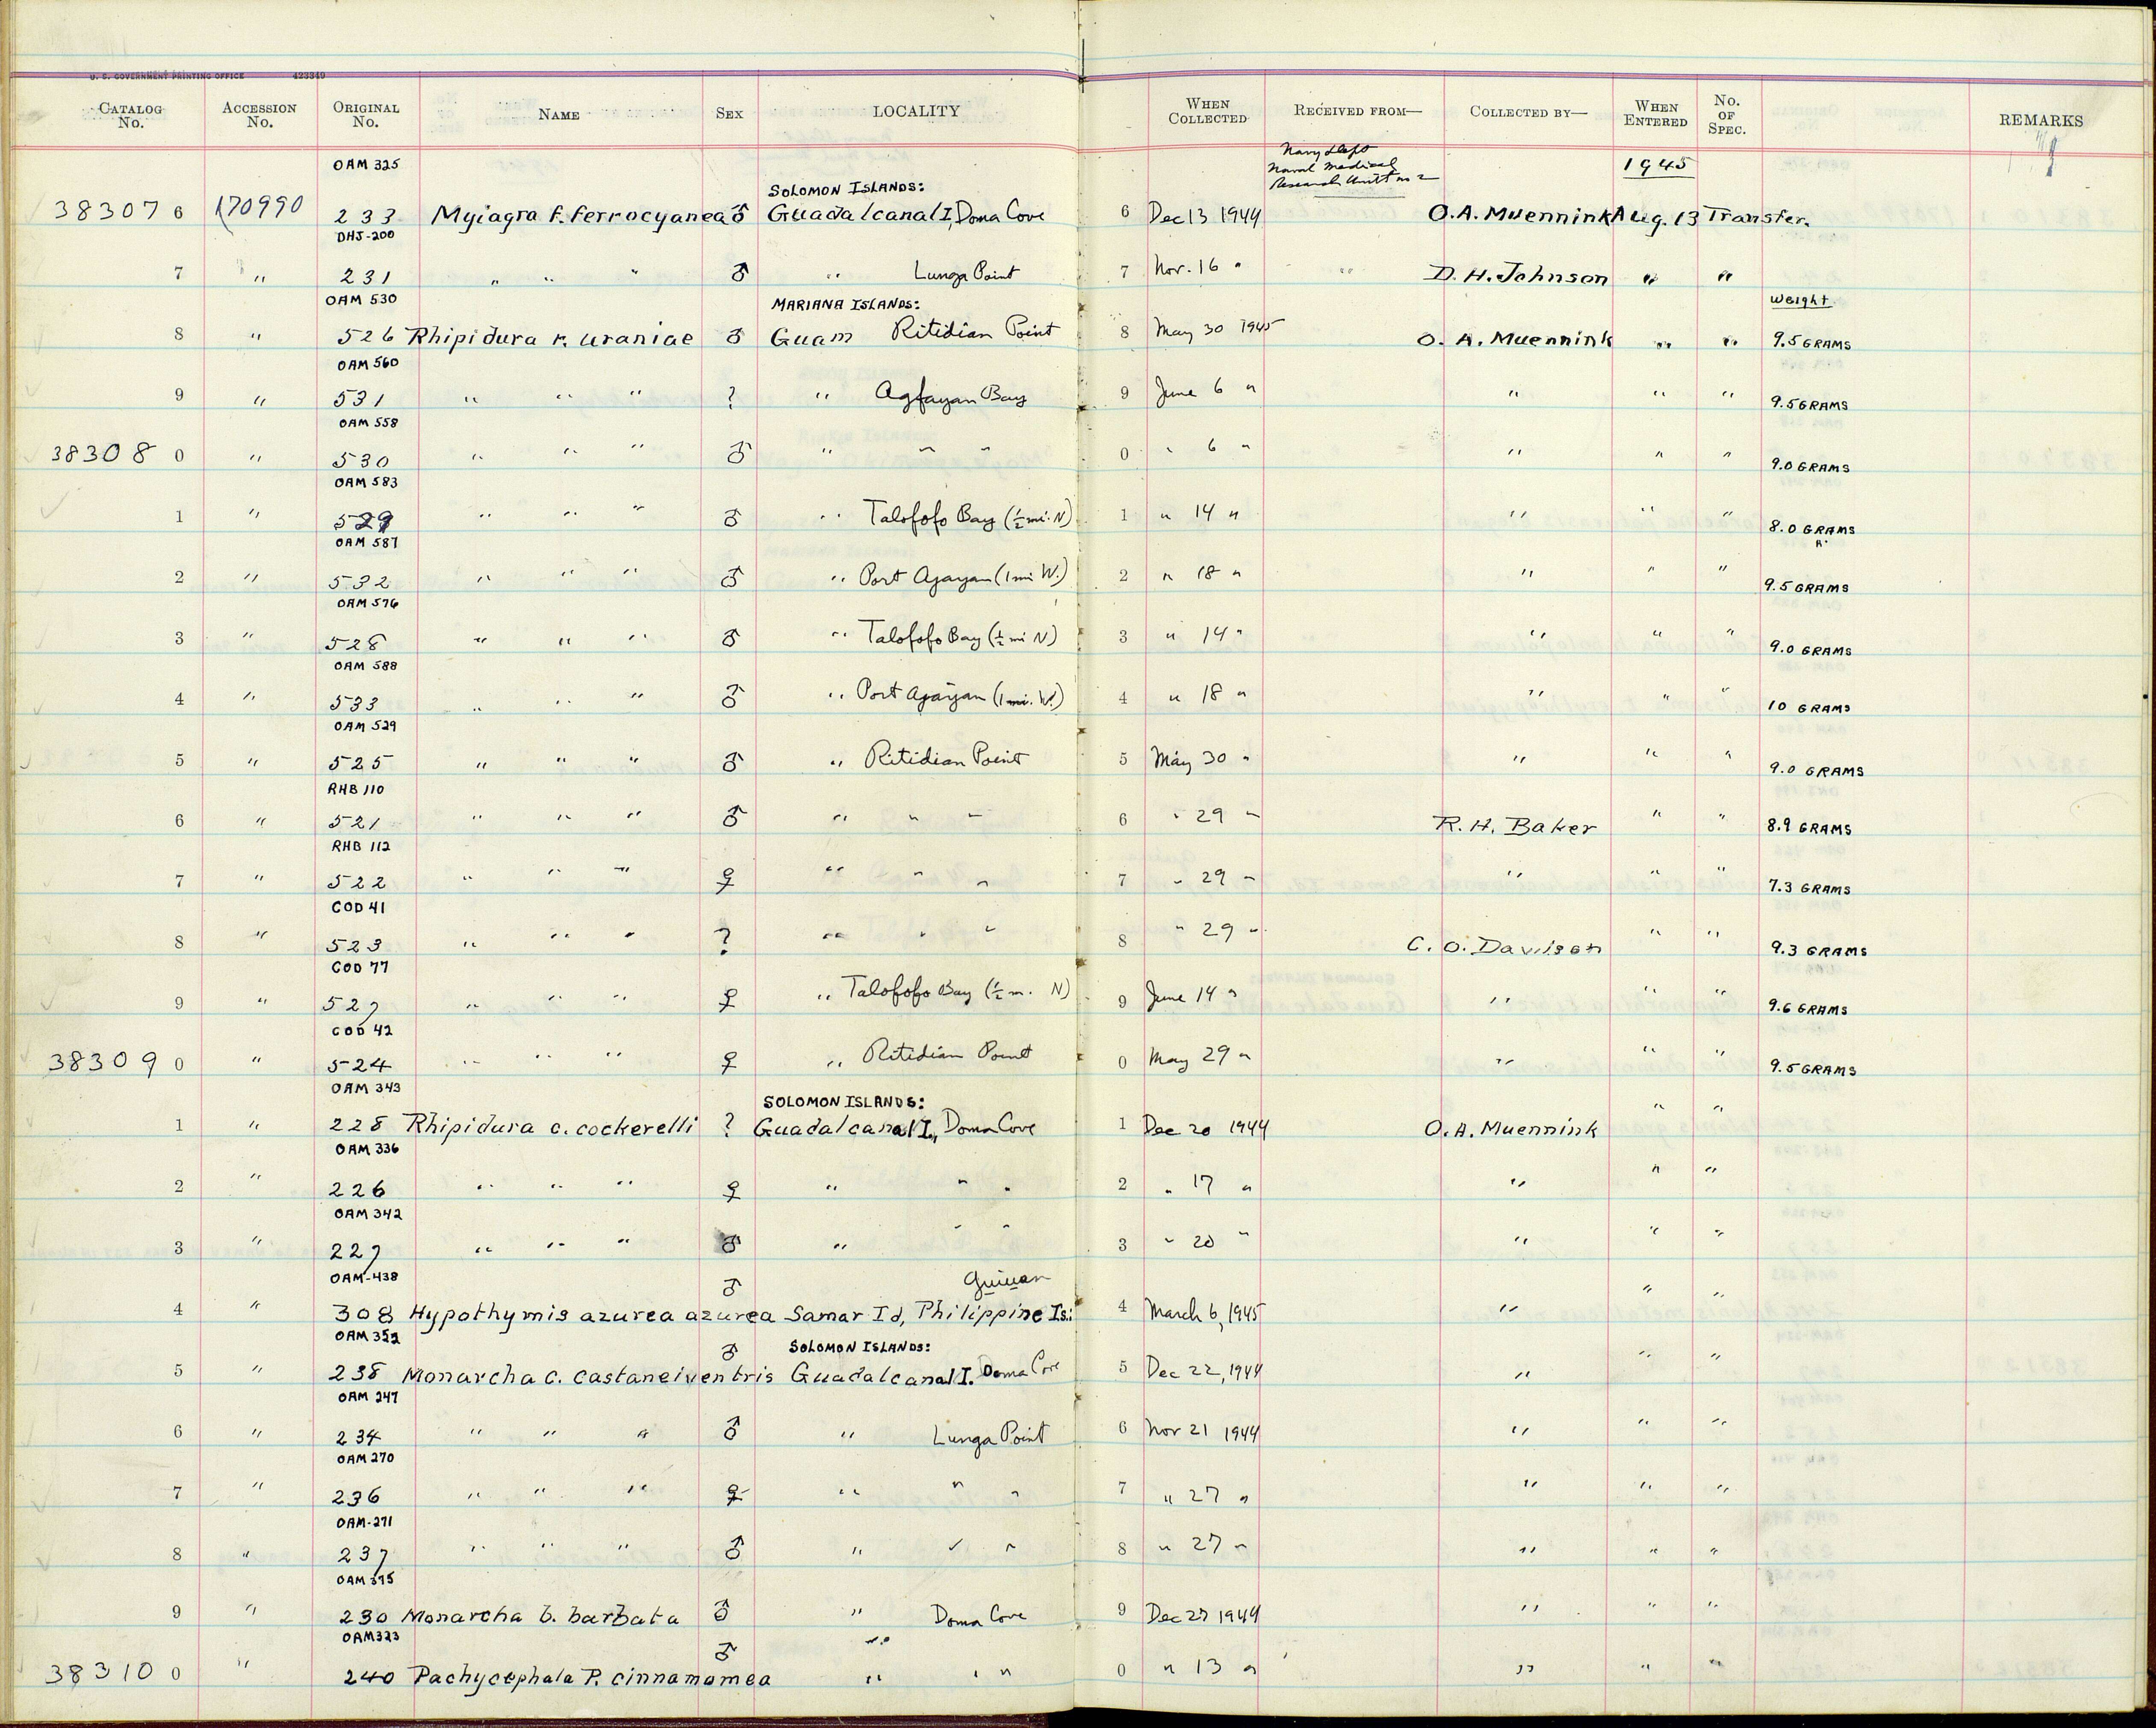 U. S. GOVERNMENT PRINTING OFFICE 423349
CATALOG No. ACCESSION No. ORIGINAL No. NAME SEX LOCALITY WHEN COLLECTED RECEIVED FROM— COLLECTED BY— WHEN ENTERED No. OF SPEC. REMARKS
OAM 325 Navy Dept 1945
Naval Medical
SOLOMON ISLANDS: Research Unit no 2
38307 6 170990 233 Myiagra f. ferrocyanea ♂ Guadalcanal I, Doma Cove 6 Dec 13 1944 O.A. Muennink Aug. 13 Transfer.
DHJ-200
7 " 231 " " " ♂ " Lunga Point 7 Nov. 16 " " D. H. Johnson " "
OAM 530 MARIANA ISLANDS: Weight
8 " 526 Rhipidura r. uraniae ♂ Guam Ritidian Point 8 May 30 1945 O. A. Muennink " " 9.5 GRAMS
OAM 560
9 " 531 " " " ? " Agfayan Bay 9 June 6 " " " " 9.5 GRAMS
OAM 558
38308 0 " 530 " " " ♂ " " " 0 " 6 " " " " 9.0 GRAMS
OAM 583
1 " 529 " " " ♂ " Talofofo Bay (½ mi. N) 1 " 14 " " " " 8.0 GRAMS
OAM 587
2 " 532 " " " ♂ " Port Ajayan (1 mi W.) 2 " 18 " " " " 9.5 GRAMS
OAM 576
3 " 528 " " " ♂ " Talofofo Bay (½ mi N) 3 " 14 " " " " 9.0 GRAMS
OAM 588
4 " 533 " " " ♂ " Port Ajayan (1 mi. W.) 4 " 18 " " " " 10 GRAMS
OAM 529
5 " 525 " " " ♂ " Ritidian Point 5 May 30 " " " " 9.0 GRAMS
RHB 110
6 " 521 " " " ♂ " " " 6 " 29 " R. H. Baker " " 8.9 GRAMS
RHB 112
7 " 522 " " " ♀ " " " 7 " 29 " " " " 7.3 GRAMS
COD 41
8 " 523 " " " ? " " " 8 " 29 " C. O. Davison " " 9.3 GRAMS
COD 77
9 " 527 " " " ♀ " Talofofo Bay (½ m. N) 9 June 14 " " " " 9.6 GRAMS
COD 42
38309 0 " 524 " " " ♀ " Ritidian Point 0 May 29 " " " " 9.5 GRAMS
OAM 343 SOLOMON ISLANDS:
1 " 228 Rhipidura c. cockerelli ? Guadalcanal I., Doma Cove 1 Dec 20 1944 O.A. Muennink " "
OAM 336
2 " 226 " " " ♀ " " " 2 " 17 " " " "
OAM 342
3 " 227 " " " ♂ " " " 3 " 20 " " " "
OAM-438 Guiuan
4 " 308 Hypothymis azurea azurea ♂ Samar Id, Philippine Is: 4 March 6, 1945 " " "
OAM 352 SOLOMON ISLANDS:
5 " 238 Monarcha c. castaneiventris ♂ Guadalcanal I. Doma Cove 5 Dec 22, 1944 " " "
OAM 247
6 " 234 " " " ♂ " Lunga Point 6 Nov 21 1944 " " "
OAM 270
7 " 236 " " " ♀ " " " 7 " 27 " " " "
OAM-271
8 " 237 " " " ♂ " " " 8 " 27 " " " "
OAM 375
9 " 230 Monarcha b. barbata ♂ " Doma Cove 9 Dec 27 1944 " " "
OAM 323
38310 0 " 240 Pachycephala P. cinnamomea ♂ " " " 0 " 13 " " " "